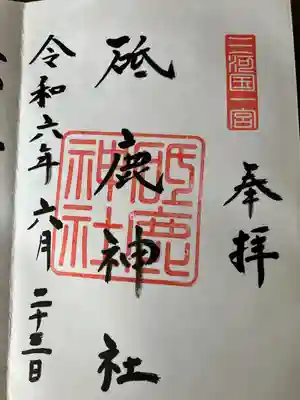 三河国一宮
奉拝
砥鹿神社
砥鹿神社
令和六年六月二十三日